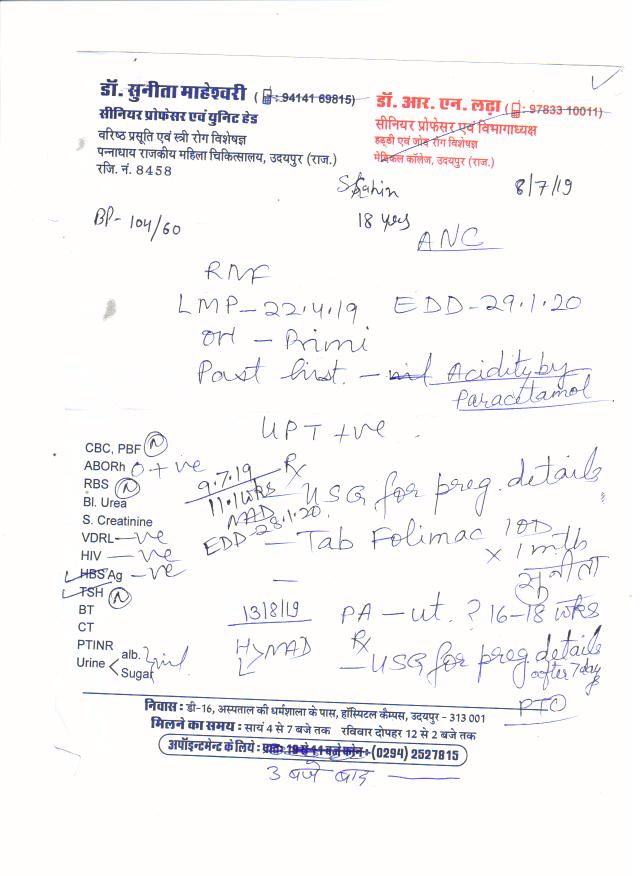 डॉ. सुनीता माहेश्वरी ( : 94141 69815)
सीनियर प्रोफेसर एवं युनिट हेड
वरिष्ठ प्रसूति एवं स्त्री रोग विशेषज्ञ
पन्नाधाय राजकीय महिला चिकित्सालय, उदयपुर (राज.)
रजि. नं. 8458
डॉ. आर. एन. लढ़ा ( : 97833 10011)
सीनियर प्रोफेसर एवं विभागाध्यक्ष
हड्डी एवं जोड़ रोग विशेषज्ञ
मेडिकल कॉलेज, उदयपुर (राज.)
8/7/19
BP- 104/60
18 yrs
ANC
LMP-22.4.19 EDD-29.1.20
OH - Primi
Past hist. - nil Acidity by
Paracetamol
UPT +ve
CBC, PBF N
ABORh O +ve
RBS N
Bl. Urea
S. Creatinine
VDRL -ve
HIV -ve
HBS Ag -ve
TSH N
BT
CT
PTINR
Urine alb. nil
Sugar
9.7.19
11.1 wks
NAD
EDD-28.1.20
Rx
- USG for preg. details
- Tab Folimac 1OD
x 1 mth
सुनीता
13/8/19 PA - ut. ? 16-18 wks
H L > NAD
Rx
- USG for preg. details
after 7 day
PTO
निवास : डी-16, अस्पताल की धर्मशाला के पास, हॉस्पिटल कैम्पस, उदयपुर - 313 001
मिलने का समय : सायं 4 से 7 बजे तक रविवार दोपहर 12 से 2 बजे तक
अपॉइन्टमेन्ट के लिये : प्रातः 10 से 11 बजे फोन : (0294) 2527815
3 बजे बाद